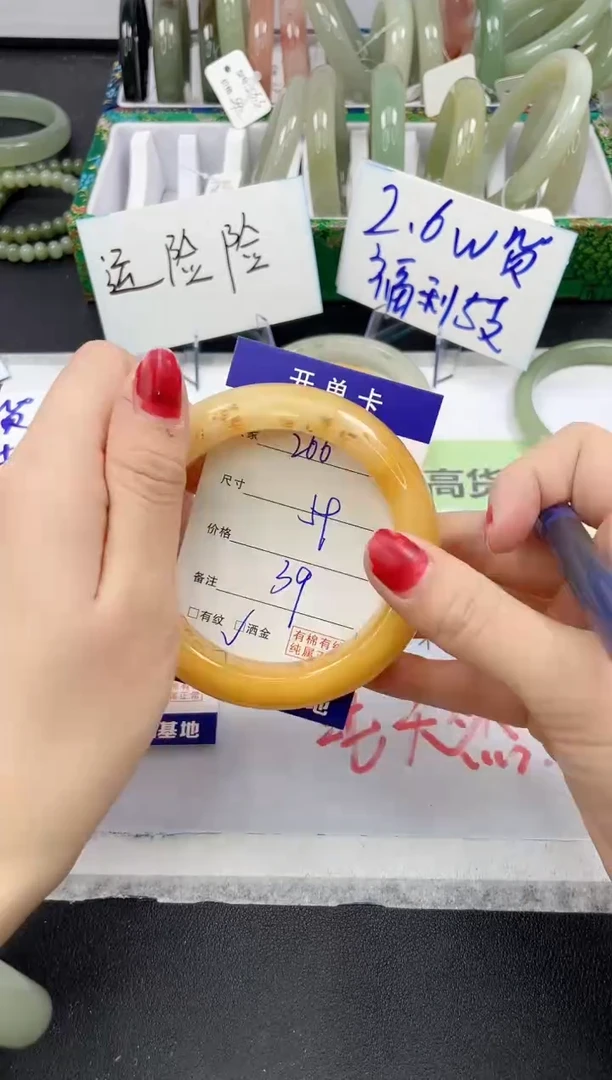 运险险
2.6W货
福利5支
货
开单卡
家 200
尺寸 59
价格
备注 39
□有纹 ☑洒金
有棉有纹
纯属
高货
基地
地
天然